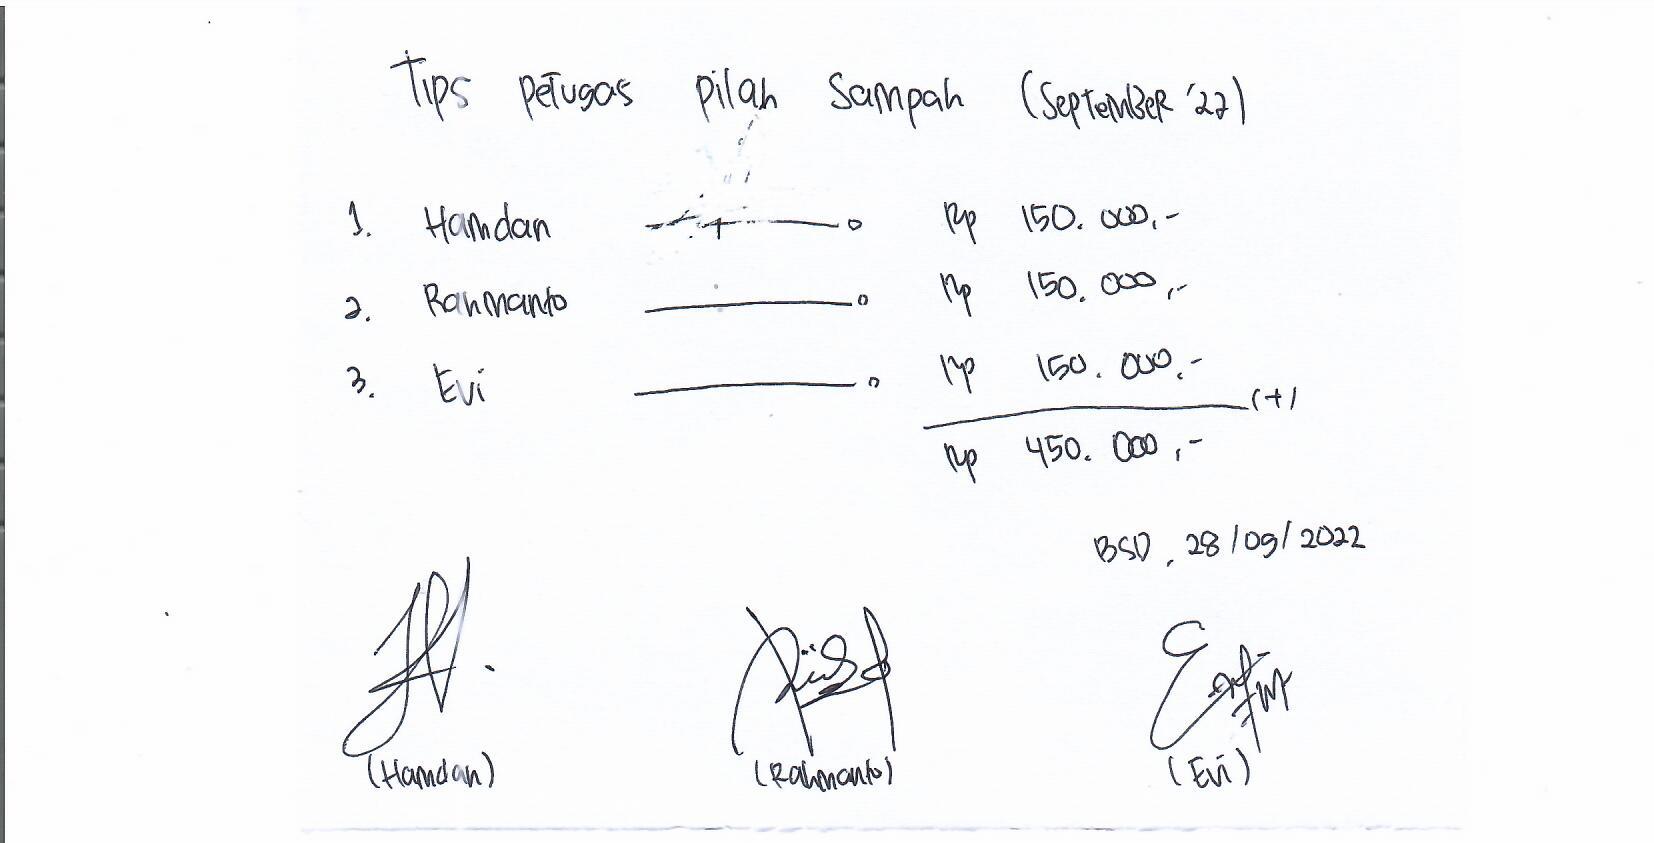 Tips petugas pilah sampah (September '22)
1. Hamdan Rp 150.000,-
2. Rahmanto Rp 150.000,-
3. Evi Rp 150.000,-
(+)
Rp 450.000,-
BSD, 28/09/2022
(Hamdan) (Rahmanto) (Evi)